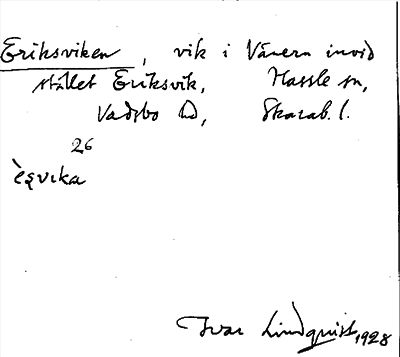 Eriksviken, vik i Vänern invid
stället Eriksvik, Hassle sn,
Vadsbo hd, Skarab. l.
26
èsvika
Ivar Lindquist, 1928